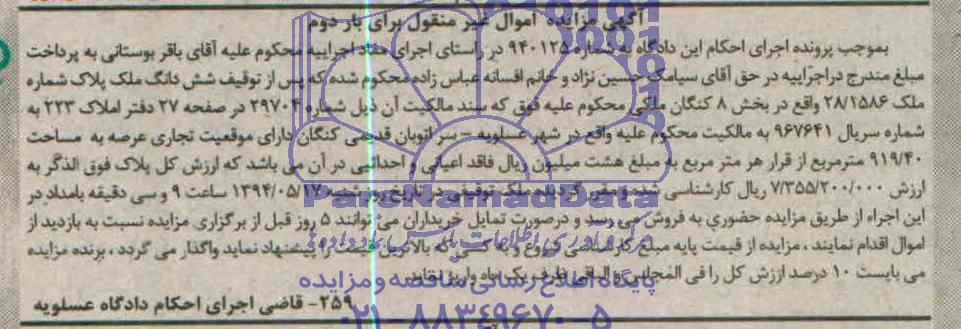 آگهی مزایده اموال غیر منقول برای بار دوم
بموجب پرونده اجرای احکام این دادگاه به شماره ۹۴۰۱۲۵ در راستای اجرای مفاد اجراییه محکوم علیه آقای باقر بوستانی به پرداخت
مبلغ مندرج دراجراییه در حق آقای سیامک حسین نژاد و خانم افسانه عباس زاده محکوم شده که پس از توقیف شش دانگ ملک پلاک شماره
ملک ۲۸/۱۵۸۶ واقع در بخش ۸ کنگان ملکی محکوم علیه فوق که سند مالکیت آن ذیل شماره ۲۹۷۰۴ در صفحه ۲۷ دفتر املاک ۲۲۳ به
شماره سریال ۹۶۷۶۴۱ به مالکیت محکوم علیه واقع در شهر عسلویه – سر اتوبان قدیمی کنگان دارای موقعیت تجاری عرصه به مساحت
۹۱۹/۴۰ مترمربع از قرار هر متر مربع به مبلغ هشت میلیون ریال فاقد اعیانی و احداثی در آن می باشد که ارزش کل پلاک فوق الذکر به
ارزش ۷/۳۵۵/۲۰۰/۰۰۰ ریال کارشناسی شده و مقرر گردیده ملک توقیفی در تاریخ روز شنبه ۱۳۹۴/۰۵/۱۷ ساعت ۹ و سی دقیقه بامداد در
این اجراء از طریق مزایده حضوری به فروش می رسد و درصورت تمایل خریداران می توانند ۵ روز قبل از برگزاری مزایده نسبت به بازدید از
اموال اقدام نمایند ، مزایده از قیمت پایه مبلغ کارشناسی شروع و به کسی که بالاترین قیمت را پیشنهاد نماید واگذار می گردد ، برنده مزایده
می بایست ۱۰ درصد ارزش کل را فی المجلس و الباقی ظرف یک ماه واریز نماید.
۲۵۹- قاضی اجرای احکام دادگاه عسلویه
ParsNamadData
پایگاه اطلاع رسانی مناقصه و مزایده
۰۲۱-۸۸۳۴۹۶۷۰-۵